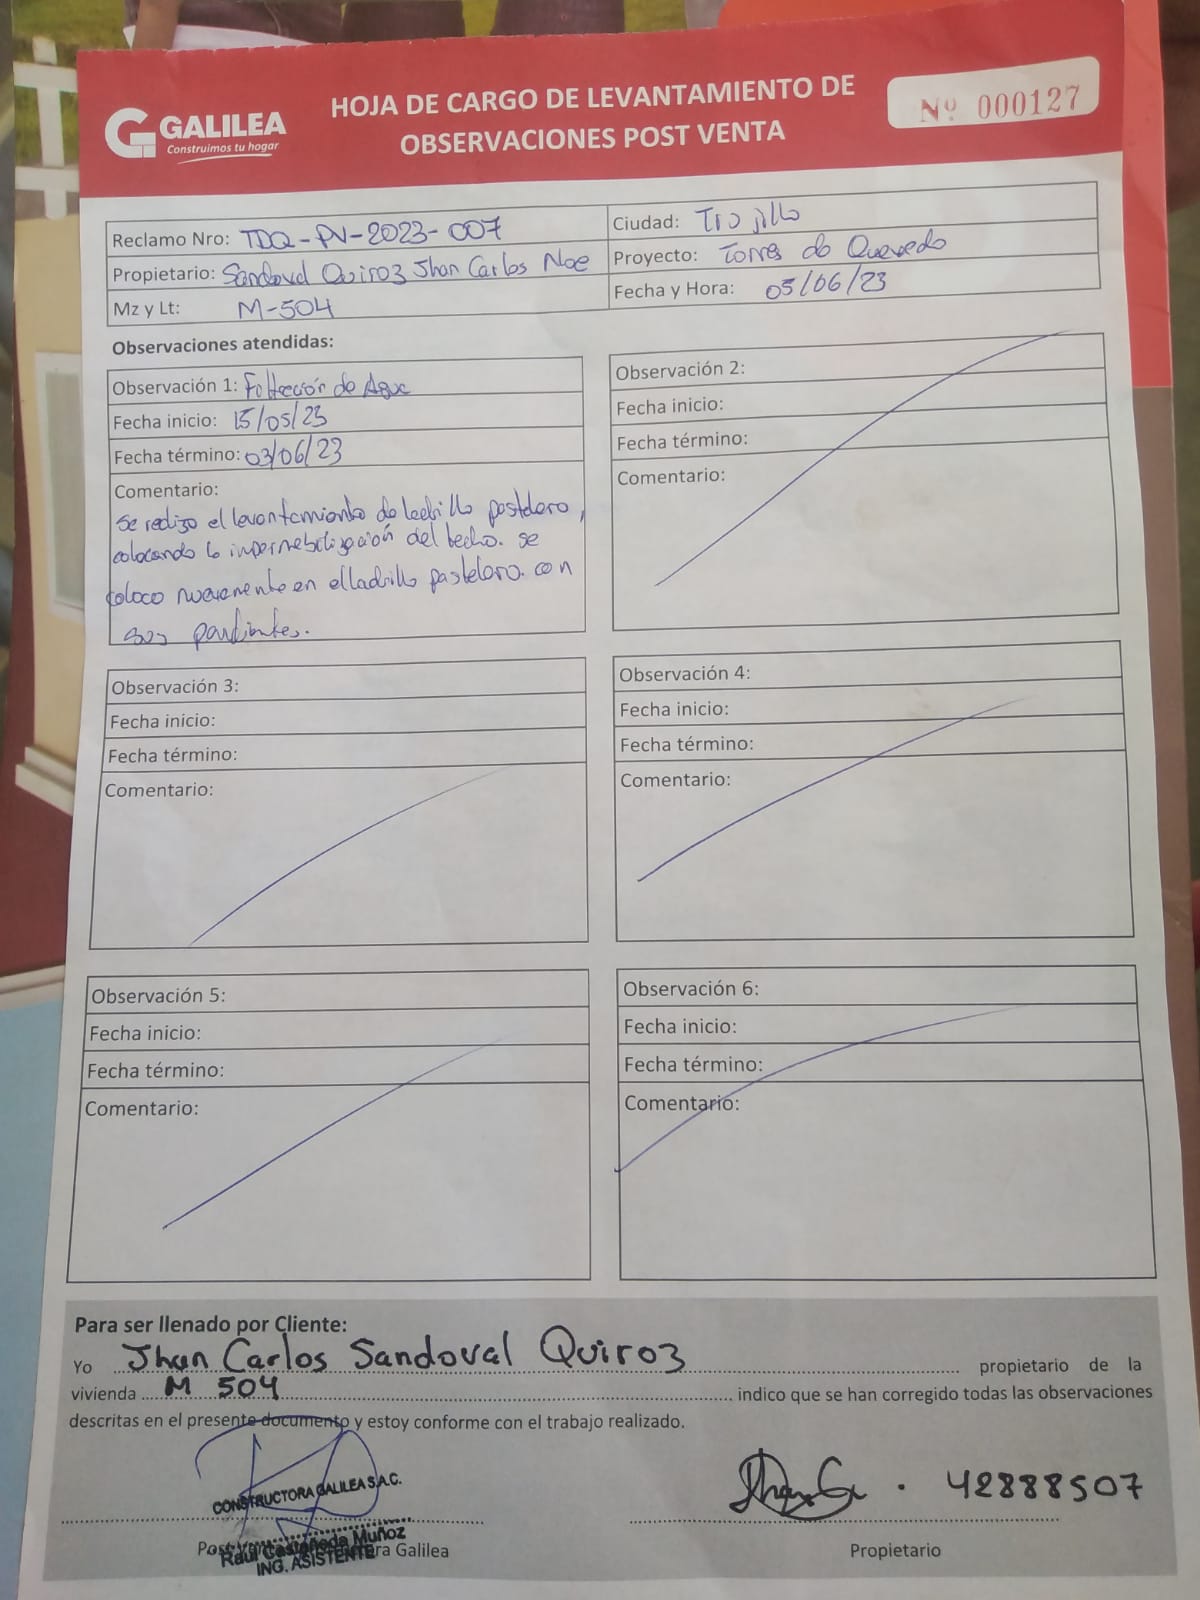 GALILEA
Construimos tu hogar
HOJA DE CARGO DE LEVANTAMIENTO DE
OBSERVACIONES POST VENTA
Nº 000127
Reclamo Nro: TDQ-PV-2023-007
Ciudad: Trujillo
Propietario: Sandoval Quiroz Jhan Carlos Noe
Proyecto: Torres de Quevedo
Mz y Lt: M-504
Fecha y Hora: 05/06/23
Observaciones atendidas:
Observación 1: Filtración de Agua
Fecha inicio: 15/05/23
Fecha término: 03/06/23
Comentario:
Se realizo el levantamiento de ladrillo pastelero,
colocando la impermebilización del techo. se
coloco nuevamente en el ladrillo pastelero. con
sus pendientes.
Observación 2:
Fecha inicio:
Fecha término:
Comentario:
Observación 3:
Fecha inicio:
Fecha término:
Comentario:
Observación 4:
Fecha inicio:
Fecha término:
Comentario:
Observación 5:
Fecha inicio:
Fecha término:
Comentario:
Observación 6:
Fecha inicio:
Fecha término:
Comentario:
Para ser llenado por Cliente:
Yo Jhan Carlos Sandoval Quiroz propietario de la
vivienda M 504 indico que se han corregido todas las observaciones
descritas en el presente documento y estoy conforme con el trabajo realizado.
CONSTRUCTORA GALILEA S.A.C.
Raul Castañeda Muñoz
ING. ASISTENTE
Galilea
42888507
Propietario